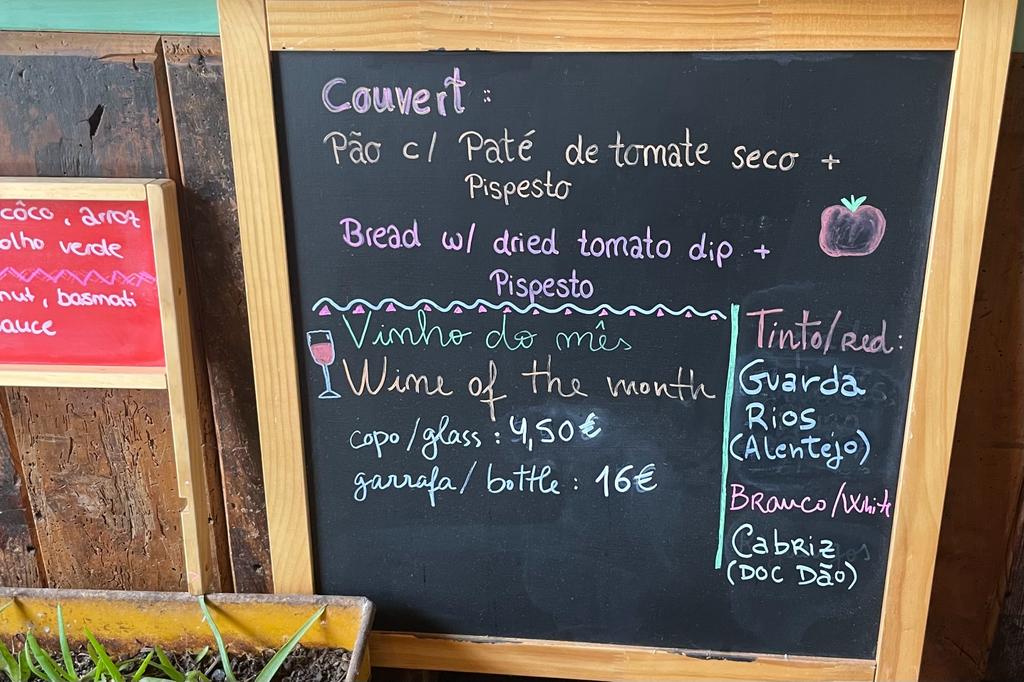 côco, arroz
olho verde
nut, basmati
auce
Couvert :
Pão c/ Paté de tomate seco +
Pispesto
Bread w/ dried tomato dip +
Pispesto
Vinho do mês
Wine of the month
copo/glass : 4,50€
garrafa/ bottle : 16€
Tinto/red:
Guarda
Rios
(Alentejo)
Branco/White
Cabriz
(DOC Dão)